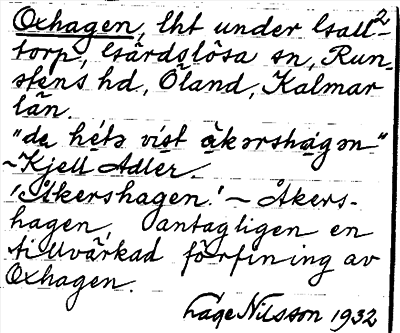 Oxhagen, lht under Gsall²-
torp, Gärdslösa sn, Run-
stens hd, Öland, Kalmar
län.
"de hétə vist åkərshagən"
~ Kjell Adler.
'Åkershagen.' ~ Åkers-
hagen, antagligen en
tillvärkad förfining av
Oxhagen.
Låge Nilsson 1932